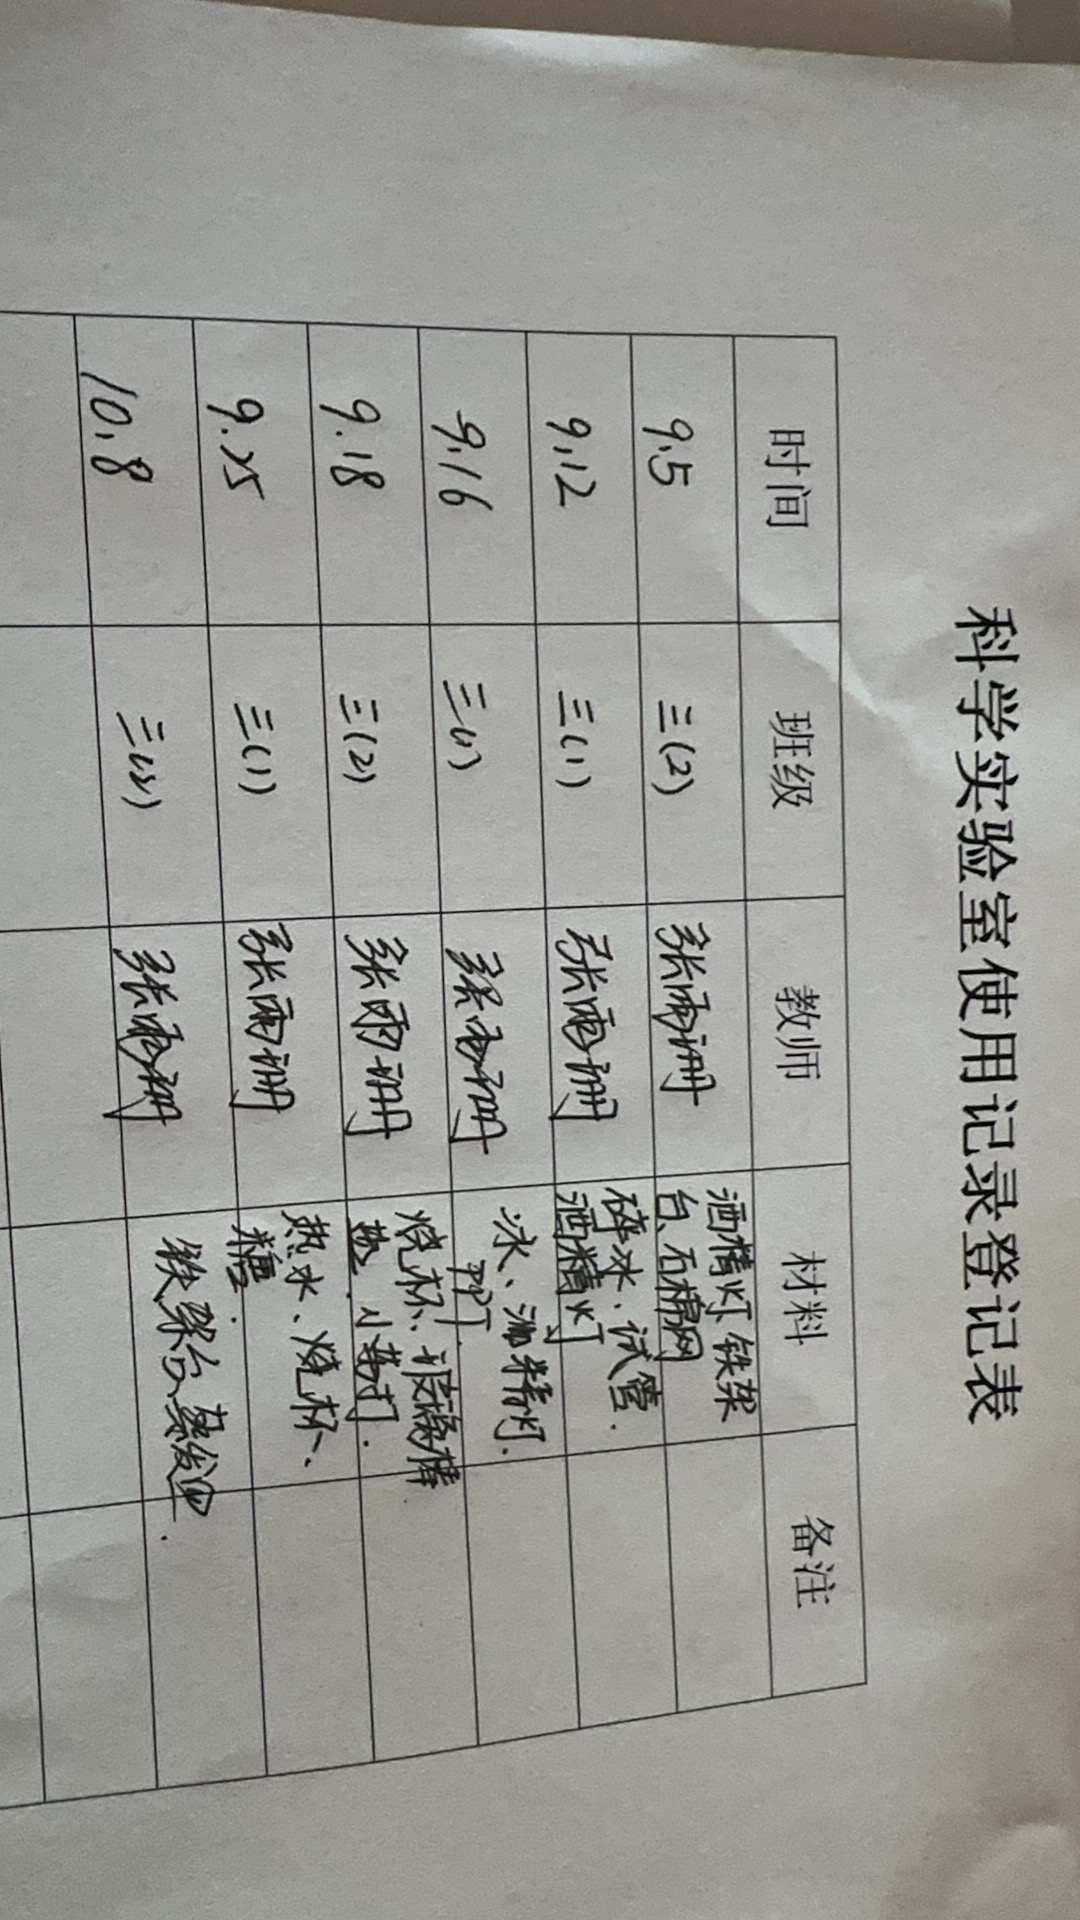 科学实验室使用记录登记表
时间 班级 教师 材料 备注
9.5 三(2) 张雨珊 酒精灯、铁架
台、石棉网
9.12 三(1) 张雨珊 碎冰、试管、
酒精灯
9.16 三(1) 张雨珊 冰、酒精灯、
PPT
9.18 三(2) 张雨珊 烧杯、玻璃棒
盐、小苏打.
9.25 三(1) 张雨珊 热水、烧杯、
糖.
10.8 张雨珊 铁架台、蒸发皿.